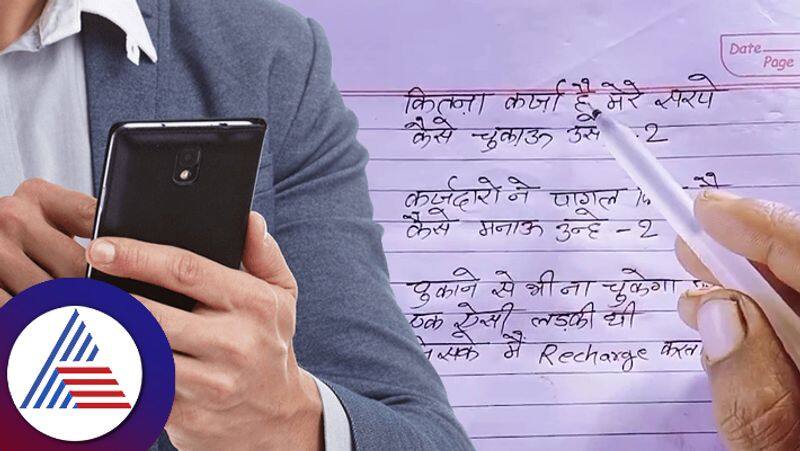 Date
Page
कितना कर्ज़ा है मेरे सरपे
कैसे चुकाऊ उसे - 2
कर्जदारो ने पागल है
कैसे मनाऊ उन्हे - 2
चुकाने से भी ना चुकेगा
एक ऐसी लड़की थी
जिसके मै Recharge करता